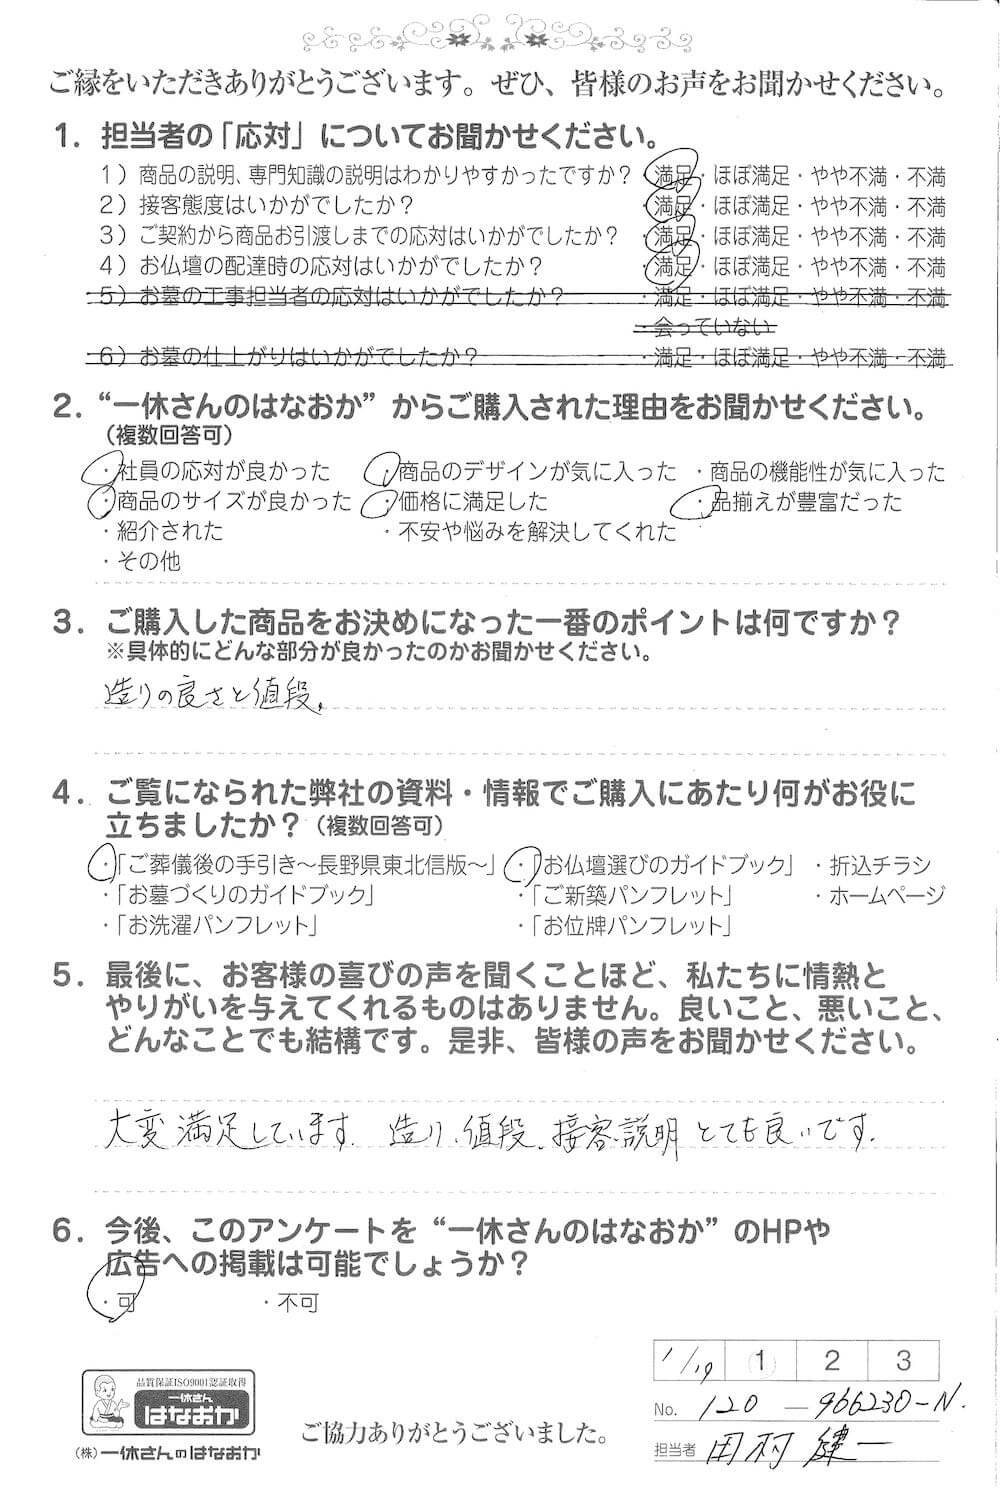 ご縁をいただきありがとうございます。ぜひ、皆様のお声をお聞かせください。
1. 担当者の「応対」についてお聞かせください。
1）商品の説明、専門知識の説明はわかりやすかったですか？ ・満足・ほぼ満足・やや不満・不満
2）接客態度はいかがでしたか？ ・満足・ほぼ満足・やや不満・不満
3）ご契約から商品お引渡しまでの応対はいかがでしたか？ ・満足・ほぼ満足・やや不満・不満
4）お仏壇の配達時の応対はいかがでしたか？ ・満足・ほぼ満足・やや不満・不満
5）お墓の工事担当者の応対はいかがでしたか？ ・満足・ほぼ満足・やや不満・不満
・会っていない
6）お墓の仕上がりはいかがでしたか？ ・満足・ほぼ満足・やや不満・不満
2. “一休さんのはなおか”からご購入された理由をお聞かせください。
（複数回答可）
・社員の応対が良かった ・商品のデザインが気に入った ・商品の機能性が気に入った
・商品のサイズが良かった ・価格に満足した ・品揃えが豊富だった
・紹介された ・不安や悩みを解決してくれた
・その他
3. ご購入した商品をお決めになった一番のポイントは何ですか？
※具体的にどんな部分が良かったのかお聞かせください。
造りの良さと値段。
4. ご覧になられた弊社の資料・情報でご購入にあたり何がお役に
立ちましたか？（複数回答可）
・「ご葬儀後の手引き～長野県東北信版～」 ・「お仏壇選びのガイドブック」 ・折込チラシ
・「お墓づくりのガイドブック」 ・「ご新築パンフレット」 ・ホームページ
・「お洗濯パンフレット」 ・「お位牌パンフレット」
5. 最後に、お客様の喜びの声を聞くことほど、私たちに情熱と
やりがいを与えてくれるものはありません。良いこと、悪いこと、
どんなことでも結構です。是非、皆様の声をお聞かせください。
大変満足しています。造り、値段、接客説明とても良いです。
6. 今後、このアンケートを“一休さんのはなおか”のHPや
広告への掲載は可能でしょうか？
・可 ・不可
1/19 1 2 3
品質保証ISO9001認証取得
一休さん
はなおか
No. 120-966230-N.
（株）一休さんのはなおか
ご協力ありがとうございました。
担当者 田村 健一